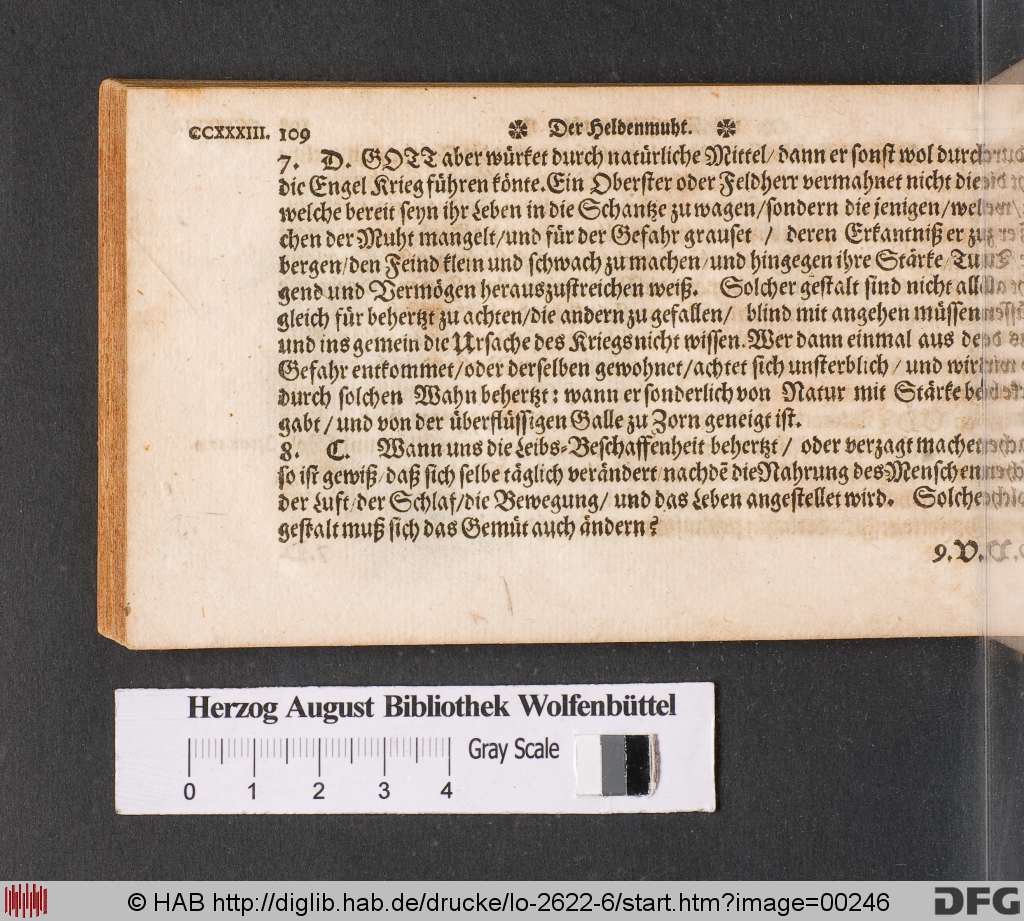 CCXXXIII. 109 ✼ Der Heldenmuht. ✼
7. D. GOTT aber würket durch natürliche Mittel/ dann er sonst wol durch
die Engel Krieg führen könte. Ein Oberster oder Feldherr vermahnet nicht die
welche bereit seyn ihr Leben in die Schantze zu wagen/ sondern die jenigen/ wel-
chen der Muht mangelt/ und für der Gefahr grauset / deren Erkantniß er zu
bergen/ den Feind klein und schwach zu machen/ und hingegen ihre Stärke/ Tu-
gend und Vermögen herauszustreichen weiß. Solcher gestalt sind nicht all
gleich für behertzt zu achten/ die andern zu gefallen/ blind mit angehen müssen
und ins gemein die Ursache des Kriegs nicht wissen. Wer dann einmal aus
Gefahr entkommet/ oder derselben gewohnet/ achtet sich unsterblich/ und wird
durch solchen Wahn behertzt: wann er sonderlich von Natur mit Stärke be-
gabt/ und von der überflüssigen Galle zu Zorn geneigt ist.
8. C. Wann uns die Leibs-Beschaffenheit behertzt/ oder verzagt machet
so ist gewiß/ daß sich selbe täglich verändert/ nachdē die Nahrung des Menschen
der Luft/ der Schlaf/ die Bewegung/ und das Leben angestellet wird. Solche
gestalt muß sich das Gemüt auch ändern?
9. V.
Herzog August Bibliothek Wolfenbüttel
0 1 2 3 4 Gray Scale
© HAB http://diglib.hab.de/drucke/lo-2622-6/start.htm?image=00246
DFG